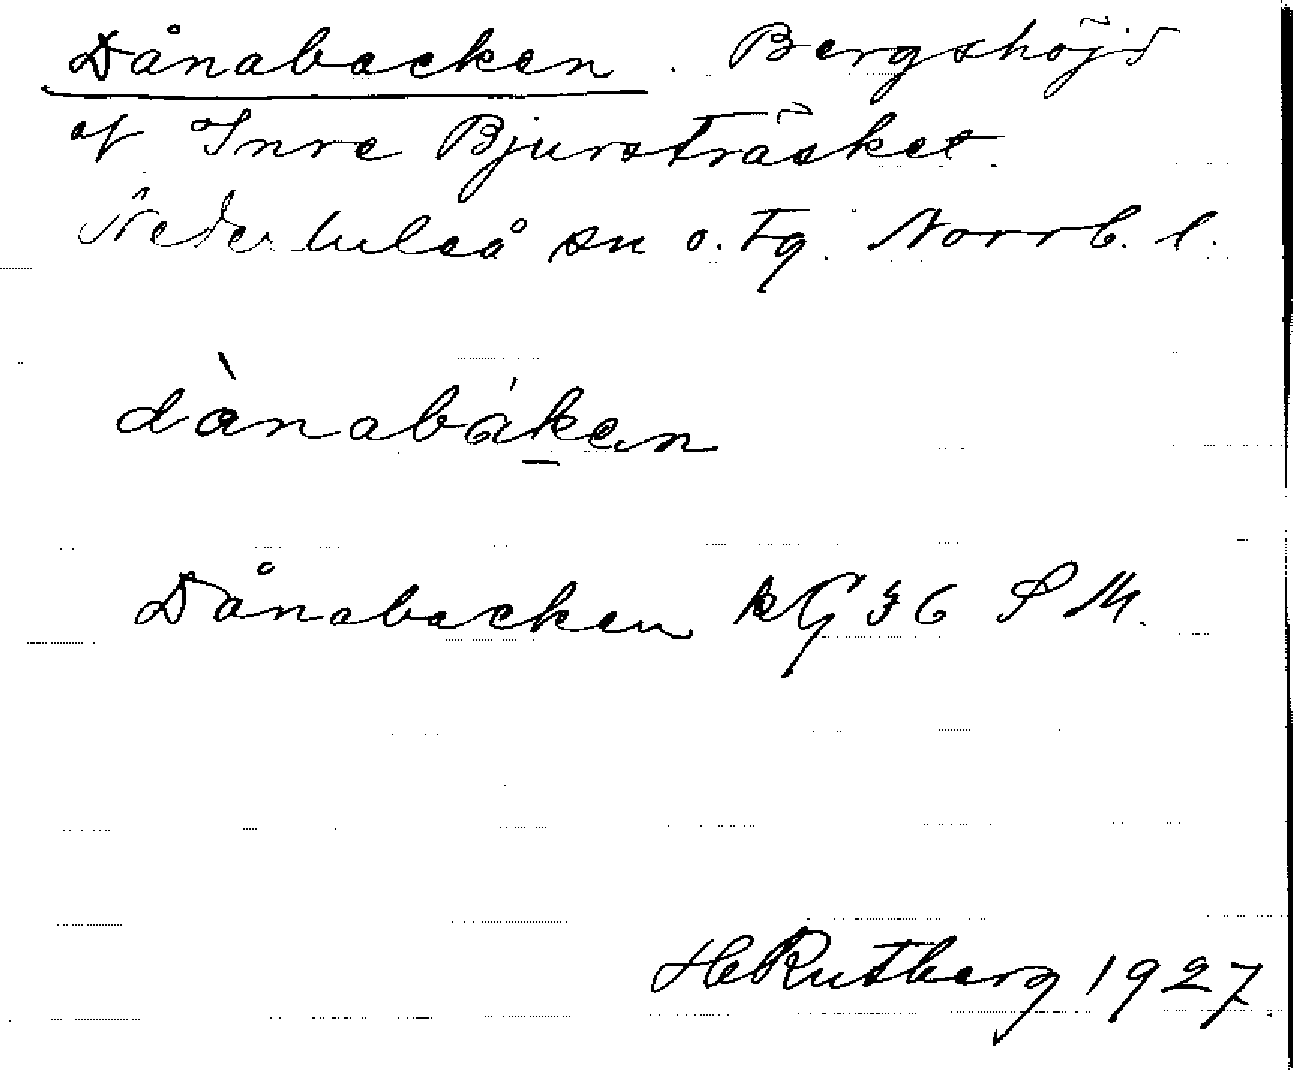 Dånabacken. Bergshöjd
af Inre Bjursträsket.
Nederluleå sn o. tg. Norrb. l.
dànabáken
Dånabacken kG 36 S M.
H Rutberg 1927